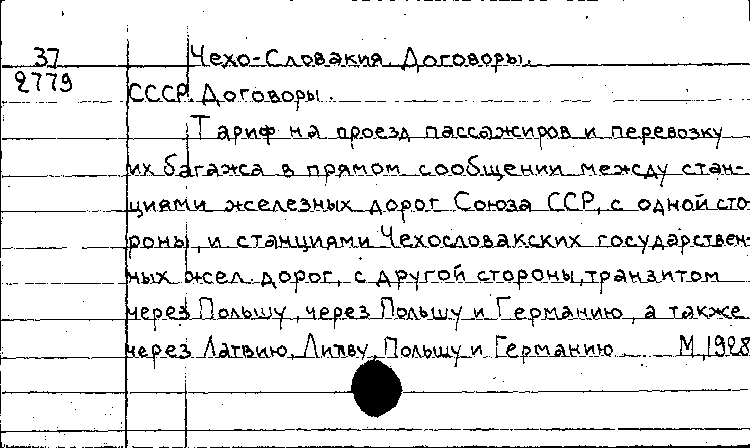 37 Чехо-Словакия. Договоры.
2779 СССР. Договоры.
Тариф на проезд пассажиров и перевозку
их багажа в прямом сообщении между стан-
циями железных дорог Союза ССР, с одной сто
роны, и станциями Чехословакских государствен-
ных жел. дорог, с другой стороны, транзитом
через Польшу, через Польшу и Германию, а также
через Латвию, Литву, Польшу и Германию М, 1928